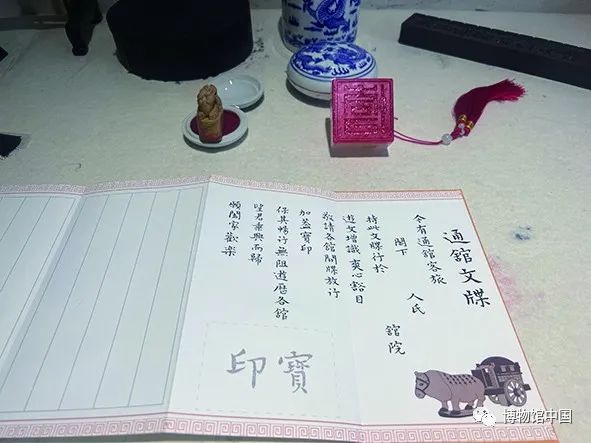 通舘文牒
今有通舘客旅 人氏
閣下 舘院
持此文牒行於
遊文增識爽心豁目
敬請各舘閱牒放行
加盖寶印
保其暢行無阻遊歷各舘
望君乘興而歸
願闔家歡樂
寶印
博物馆中国